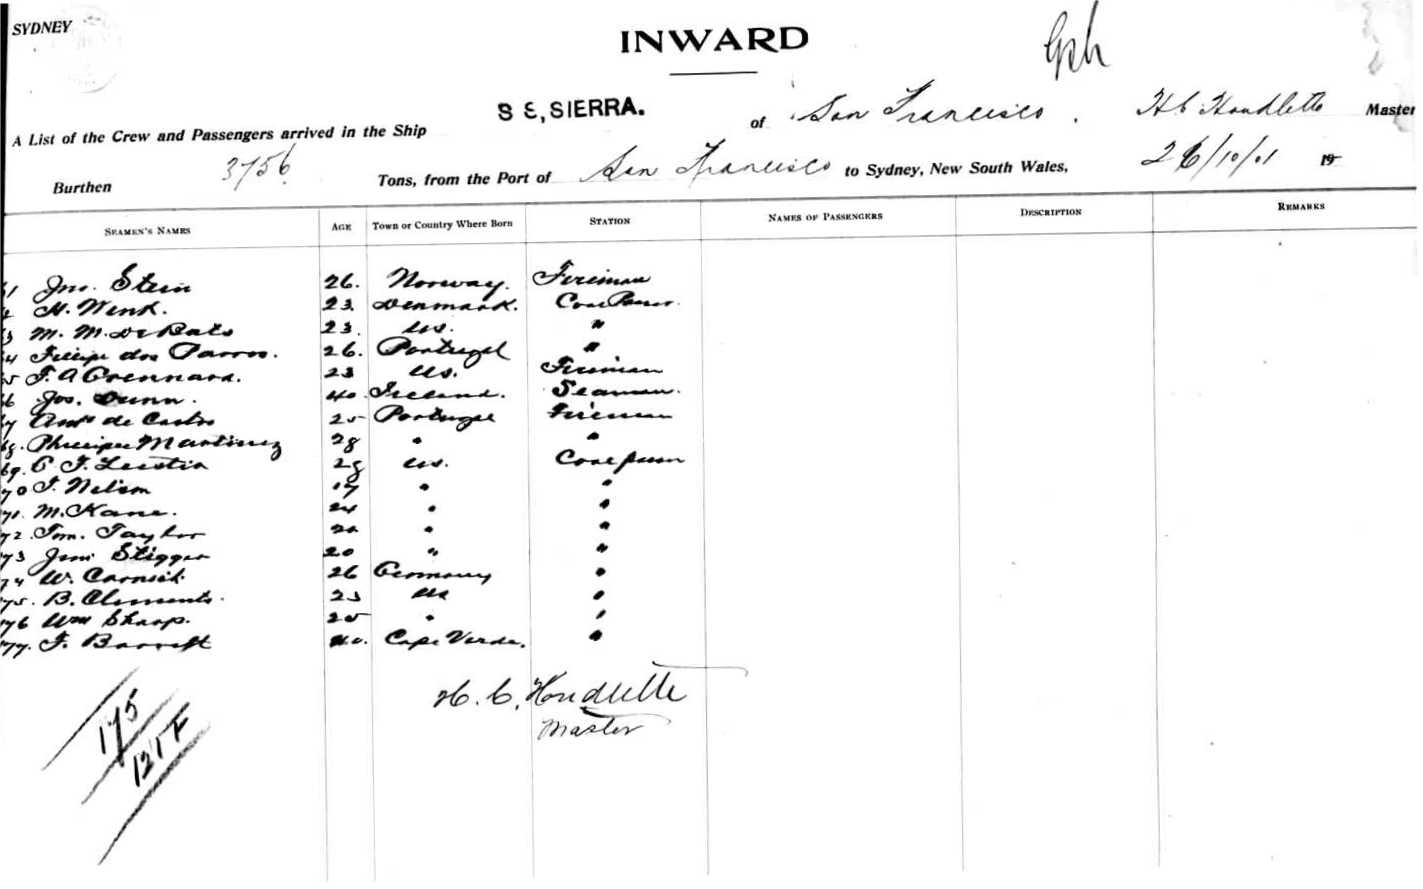 SYDNEY
INWARD
A List of the Crew and Passengers arrived in the Ship S S, SIERRA. of San Francisco. H C Houdlette Master
Burthen 3756 Tons, from the Port of San Francisco to Sydney, New South Wales, 26/10/01 19
SEAMEN'S NAMES AGE Town or Country Where Born STATION NAMES OF PASSENGERS DESCRIPTION REMARKS
61 Jno. Stein 26. Norway. Fireman
H. Wenk. 23. Denmark. Coal Passer.
63 M. M. 23. US. "
64 dos 26. Portugal "
65 F. A 23 US. Fireman
66 Jos. Dunn. 40. Ireland. Seaman.
67 de Castro 25 Portugal Fireman
68. Martinez 28 " "
69. 28 US. Coal passer
70 J. Nelson 19 " "
71. M. Kane. 24 " "
72. Tom. Taylor " "
73 Jim 20 " "
74 W. 26 Germany "
75. B. Clements. 23 US "
76 Wm Sharp. 25 " "
77. J. 40. Cape Verde. "
H. C. Houdlette
Master
175